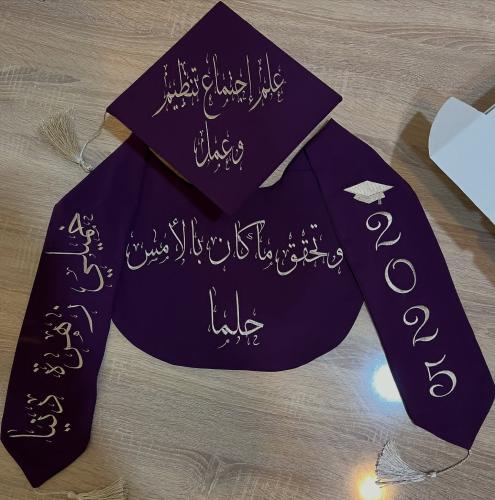 علم إجتماع تنظيم
وعمل
وتحقق ما كان بالأمس
حلما
زهرة دنيا
2025